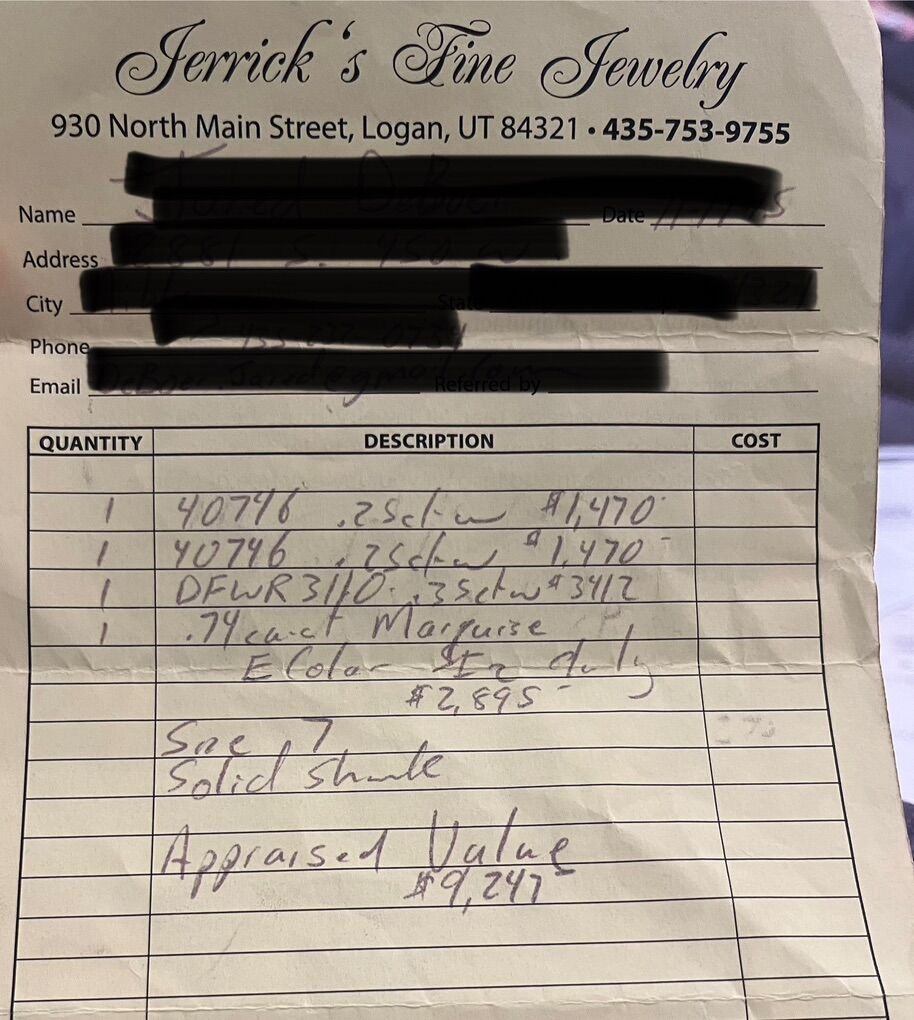 Jerrick's Fine Jewelry
930 North Main Street, Logan, UT 84321 • 435-753-9755
Name Date
Address
City State
Phone
Email Referred by
QUANTITY DESCRIPTION COST
1 40746 .25ctw $1,470-
1 40746 .25ctw $1,470-
1 DFWR3110 .35ctw $3412
1 .74 carat Marquise
E Color
$2,895-
Size 7
Solid Shank
Appraised Value
$9,247-